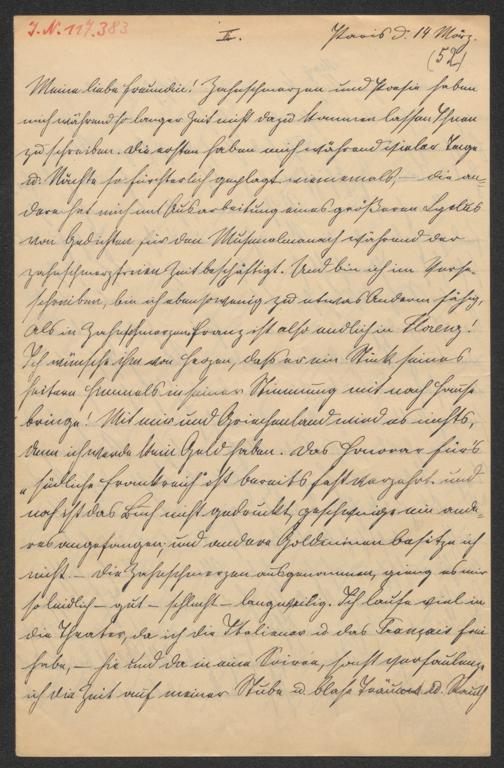 I.N. 117.383
II.
Paris d. 14 März.
(52)
Meine liebe Freundin! Zahnschmerzen und Poesie haben
mich während so langer Zeit nicht dazu kommen lassen Ihnen
zu schreiben. Die ersten haben mich während vieler Tage
u. Nächte so fürchterlich geplagt wie niemals, – die an-
dere hat mich mit Ausarbeitung eines größeren Cyclus
von Gedichten für den Musenalmanach während der
zahnschmerzfreien Zeit beschäftigt. Und bin ich im Verse-
schreiben, bin ich ebensowenig zu etwas Anderm fähig,
als in Zahnschmerzen. Franz ist also endlich in Florenz!
Ich wünsche ihm von Herzen, dass er ein Stück seines
heitern Himmels in seiner Stimmung mit nach Hause
bringe! Mit mir und Griechenland wird es nichts,
denn ich werde kein Geld haben. Das Honorar für's
"südliche Frankreich" ist bereits fast verzehrt und
noch ist das Buch nicht gedruckt, geschweige ein ande-
res angefangen, und andere Goldminen besitze ich
nicht. – Die Zahnschmerzen ausgenommen, gieng es mir
so leidlich – gut – schlecht – langweilig. Ich laufe viel in
die Theater, da ich die Italiener u. das Français frei
habe, – hie und da in eine Soirée, sonst verfaulenze
ich die Zeit auf meiner Stube u. blase Träume u. Rauch